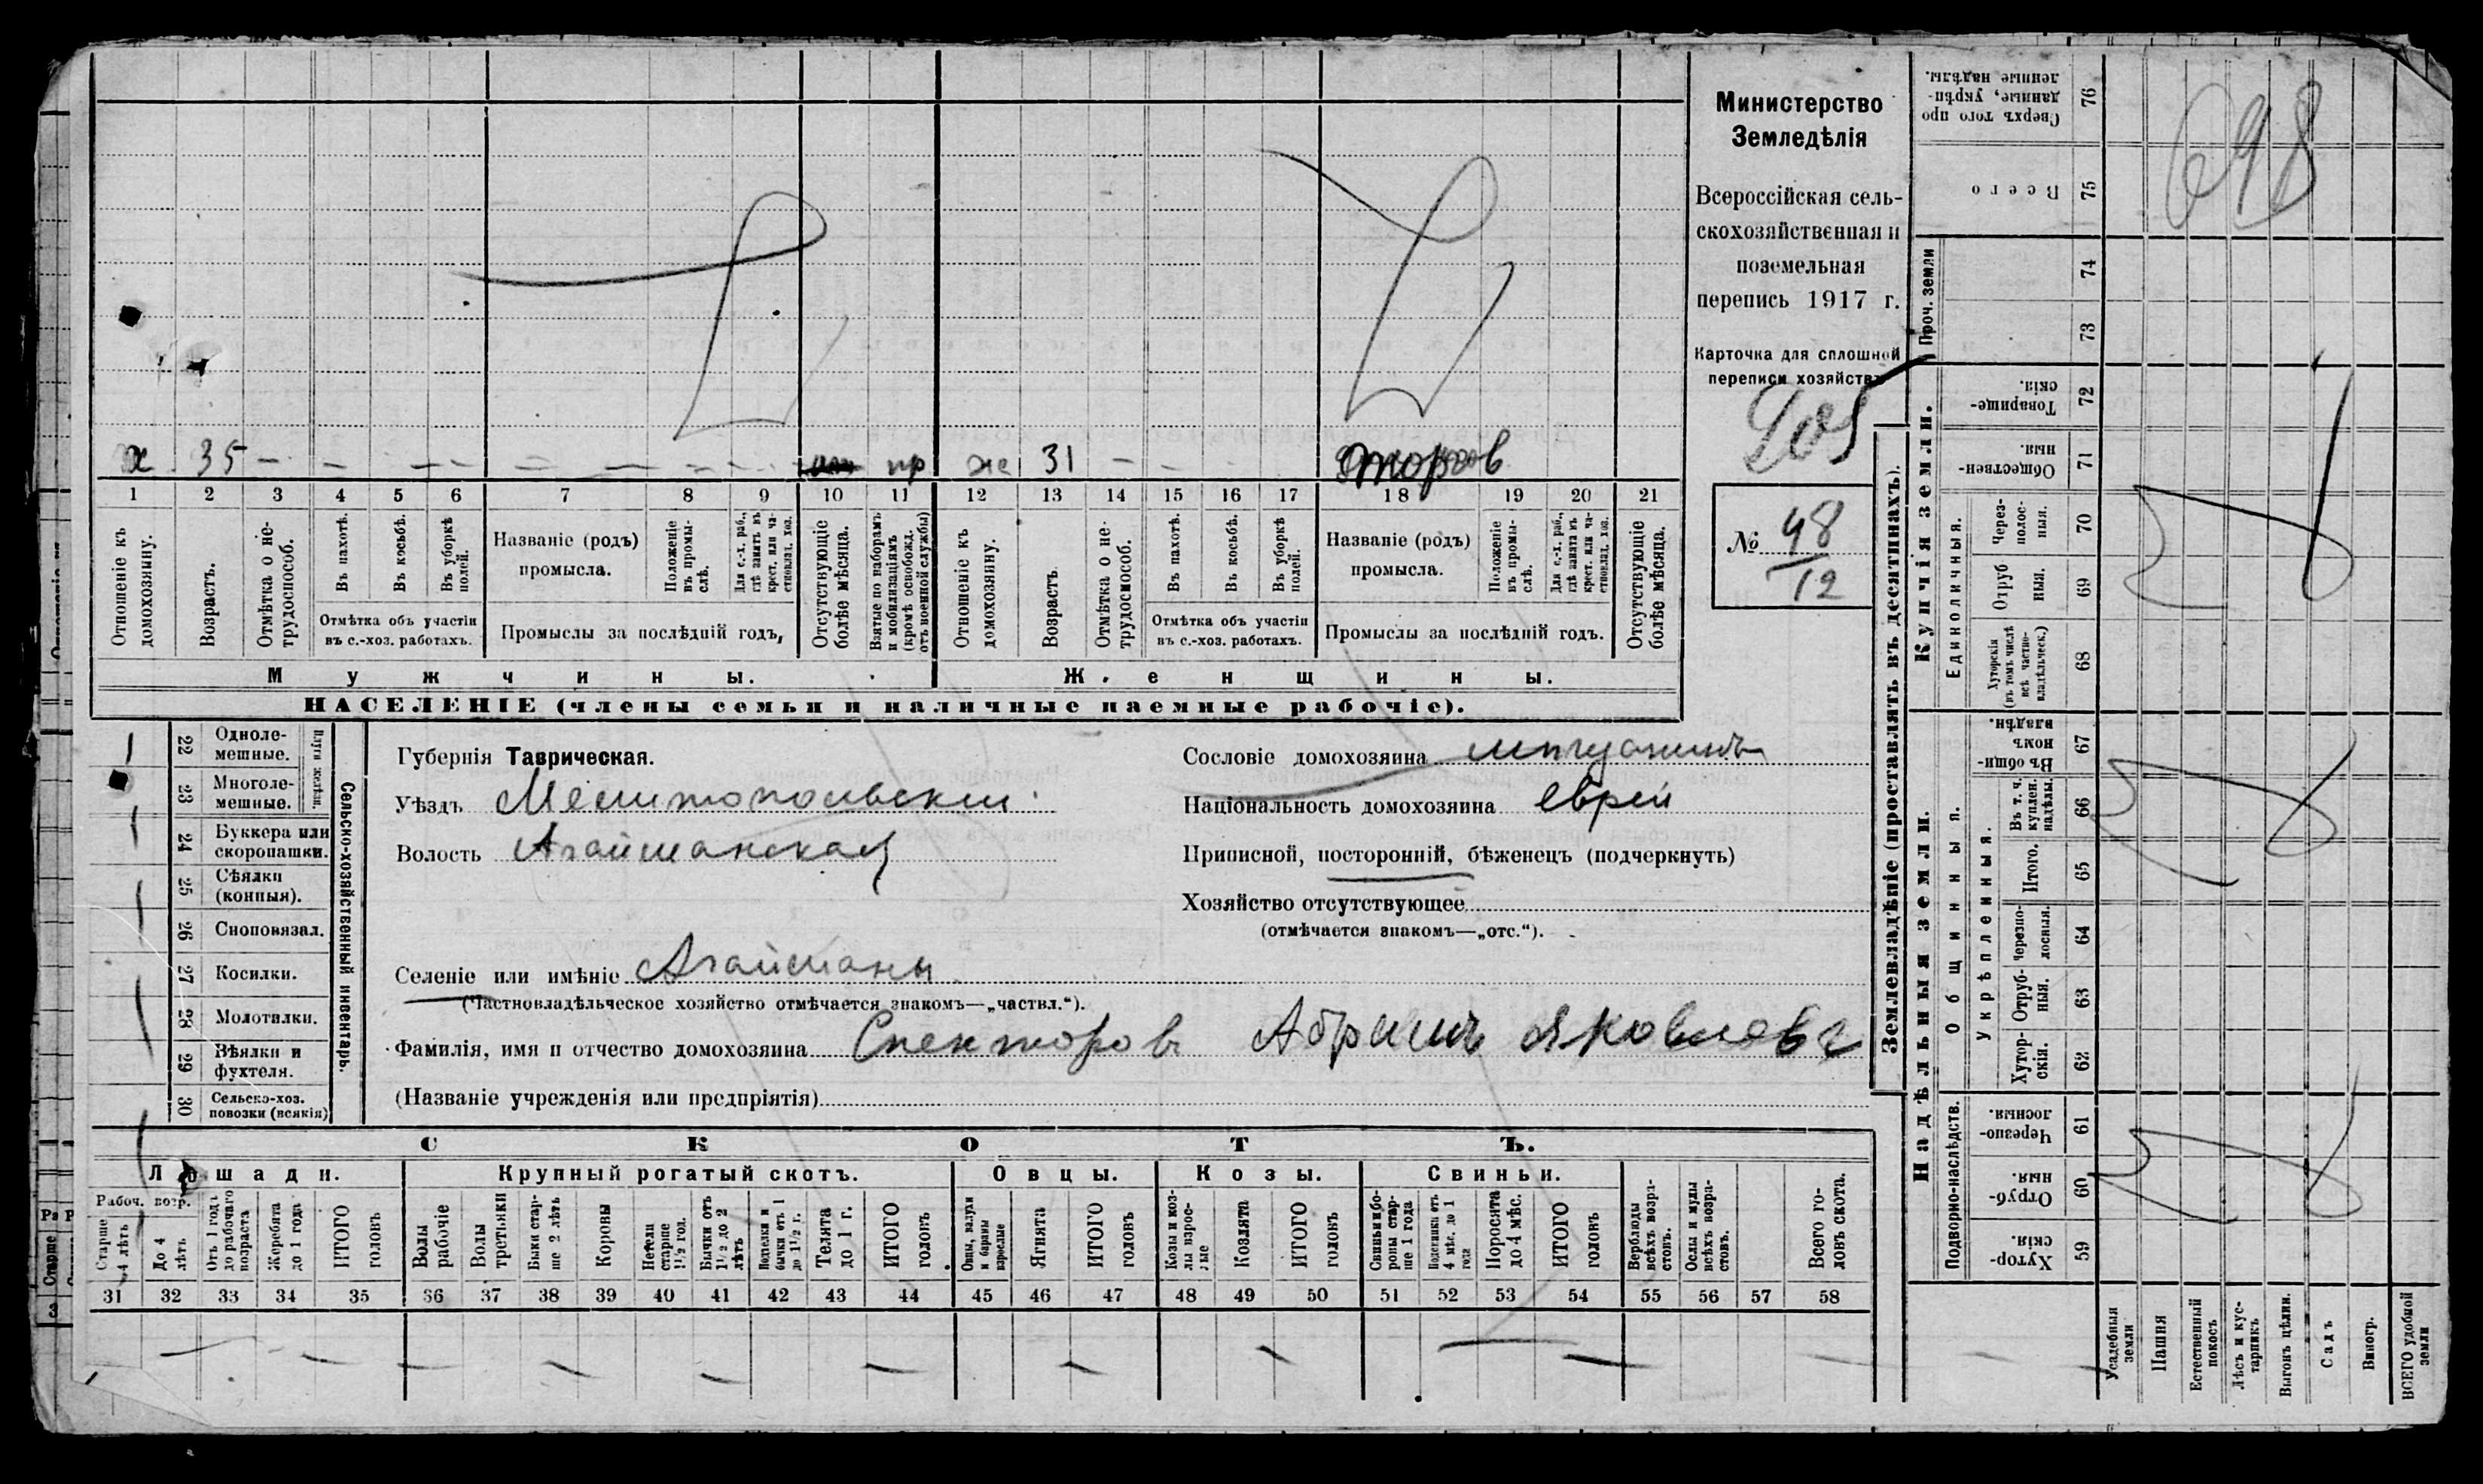 Министерство
Земледѣлія
Всероссійская сель-
скохозяйственная и
поземельная
перепись 1917 г.
Карточка для сплошной
переписи хозяйствъ
№ 48
12
698
х 35 — — — — — — — — пр ж 31 — — — торгов
1 2 3 4 5 6 7 8 9 10 11 12 13 14 15 16 17 18 19 20 21
Отношеніе къ домохозяину.
Возрастъ.
Отмѣтка о не-трудоспособ.
Въ пахотѣ.
Въ косьбѣ.
Въ уборкѣ полей.
Отмѣтка объ участіи
въ с.-хоз. работахъ.
Названіе (родъ)
промысла.
Положеніе въ промы-слѣ.
Для с.-х. раб., гдѣ занятъ въ крест. или ча-стновлад. хоз.
Промыслы за послѣдній годъ,
Отсутствующіе болѣе мѣсяца.
Взятые по наборамъ и мобилизаціямъ (кромѣ освобожд. отъ военной службы)
Отношеніе къ домохозяину.
Возрастъ
Отмѣтка о не-трудоспособ.
Въ пахотѣ.
Въ косьбѣ.
Въ уборкѣ полей.
Отмѣтка объ участіи
въ с.-хоз. работахъ.
Названіе (родъ)
промысла.
Положеніе въ промы-слѣ.
Для с.-х. раб., гдѣ занята въ крест. или ча-стновлад. хоз.
Промыслы за послѣдній годъ.
Отсутствующіе болѣе мѣсяца.
Мужчины.
Женщины.
НАСЕЛЕНІЕ (члены семьи и наличные наемные рабочіе).
22 Одноле-мешные.
23 Многоле-мешные.
Плуги желѣзн.
24 Буккера или скоропашки.
25 Сѣялки (конныя).
26 Сноповязал.
27 Косилки.
28 Молотилки.
29 Вѣялки и фухтеля.
30 Сельско-хоз. повозки (всякія)
Сельско-хозяйственный инвентарь.
Губернія Таврическая.
Уѣздъ Мелитопольскій
Волость Агайманская
Сословіе домохозяина мѣщанинъ
Національность домохозяина еврей
Приписной, посторонній, бѣженецъ (подчеркнуть)
Хозяйство отсутствующее
(отмѣчается знакомъ—„отс.“).
Селеніе или имѣніе Агайманы
(Частновладѣльческое хозяйство отмѣчается знакомъ—„частвл.“).
Фамилія, имя и отчество домохозяина Спекторовъ Абрамъ Яковлевъ
(Названіе учрежденія или предпріятія)
СКОТЪ.
Лошади.
Крупный рогатый скотъ.
Овцы.
Козы.
Свиньи.
Рабоч. возр.
Старше 4 лѣтъ
До 4 лѣтъ
Отъ 1 года до рабочаго возраста
Жеребята до 1 года
ИТОГО головъ
Волы рабочіе
Волы третьяки
Быки стар-ше 2 лѣтъ
Коровы
Нетели старше 1½ год.
Бычки отъ 1½ до 2 лѣтъ
Подтелки и бычки отъ 1 до 1½ г.
Телята до 1 г.
ИТОГО головъ
Овцы, валухи и бараны взрослые
Ягнята
ИТОГО головъ
Козы и коз-лы взрос-лые
Козлята
ИТОГО головъ
Свиньи бо-ровы стар-ше 1 года
Подсвинки отъ 4 мѣс. до 1 года
Поросята до 4 мѣс.
ИТОГО головъ
Верблюды всѣхъ возра-стовъ.
Ослы и мулы всѣхъ возра-стовъ.
Всего го-ловъ скота.
31 32 33 34 35 36 37 38 39 40 41 42 43 44 45 46 47 48 49 50 51 52 53 54 55 56 57 58
Землевладѣніе (проставлять въ десятинахъ).
Надѣльныя земли.
Купчія земли.
Проч. земли
Подворно-наслѣдств.
Общинныя.
Укрѣпленныя.
Единоличныя.
Хутор-скія. 59
Отруб-ныя. 60
Черезпо-лосныя. 61
Хутор-скія. 62
Отруб-ныя. 63
Черезпо-лосныя. 64
Итого. 65
Въ т. ч. куплен. надѣлы. 66
Въ общи-номъ владѣн. 67
Хуторскія (въ томъ числѣ всѣ частно-владѣльческ.) 68
Отруб-ныя. 69
Через-полос-ныя. 70
Обществен-ныя. 71
Товарище-скія. 72
73
74
Всего 75
Сверхъ того про-данные, укрѣп-ленные надѣлы. 76
Усадебныя земли
Пашня
Естественный покосъ
Лѣсъ и кус-тарникъ
Выгонъ цѣлин.
Садъ
Виногр.
ВСЕГО удобной земли